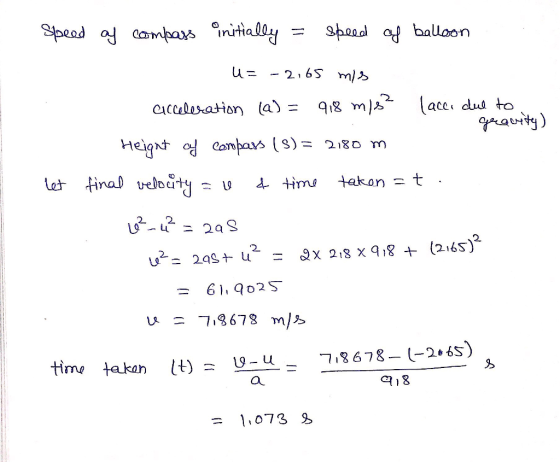 Speed of compass initially = speed of balloon
u = - 2.65 m/s
acceleration (a) = 9.8 m/s² (acc. due to gravity)
Height of compass (S) = 2.80 m
let final velocity = v & time taken = t .
v² - u² = 2as
v² = 2as + u² = 2 x 2.8 x 9.8 + (2.65)²
= 61.9025
v = 7.8678 m/s
time taken (t) = (v-u)/a = (7.8678 - (-2.65))/9.8 s
= 1.073 s